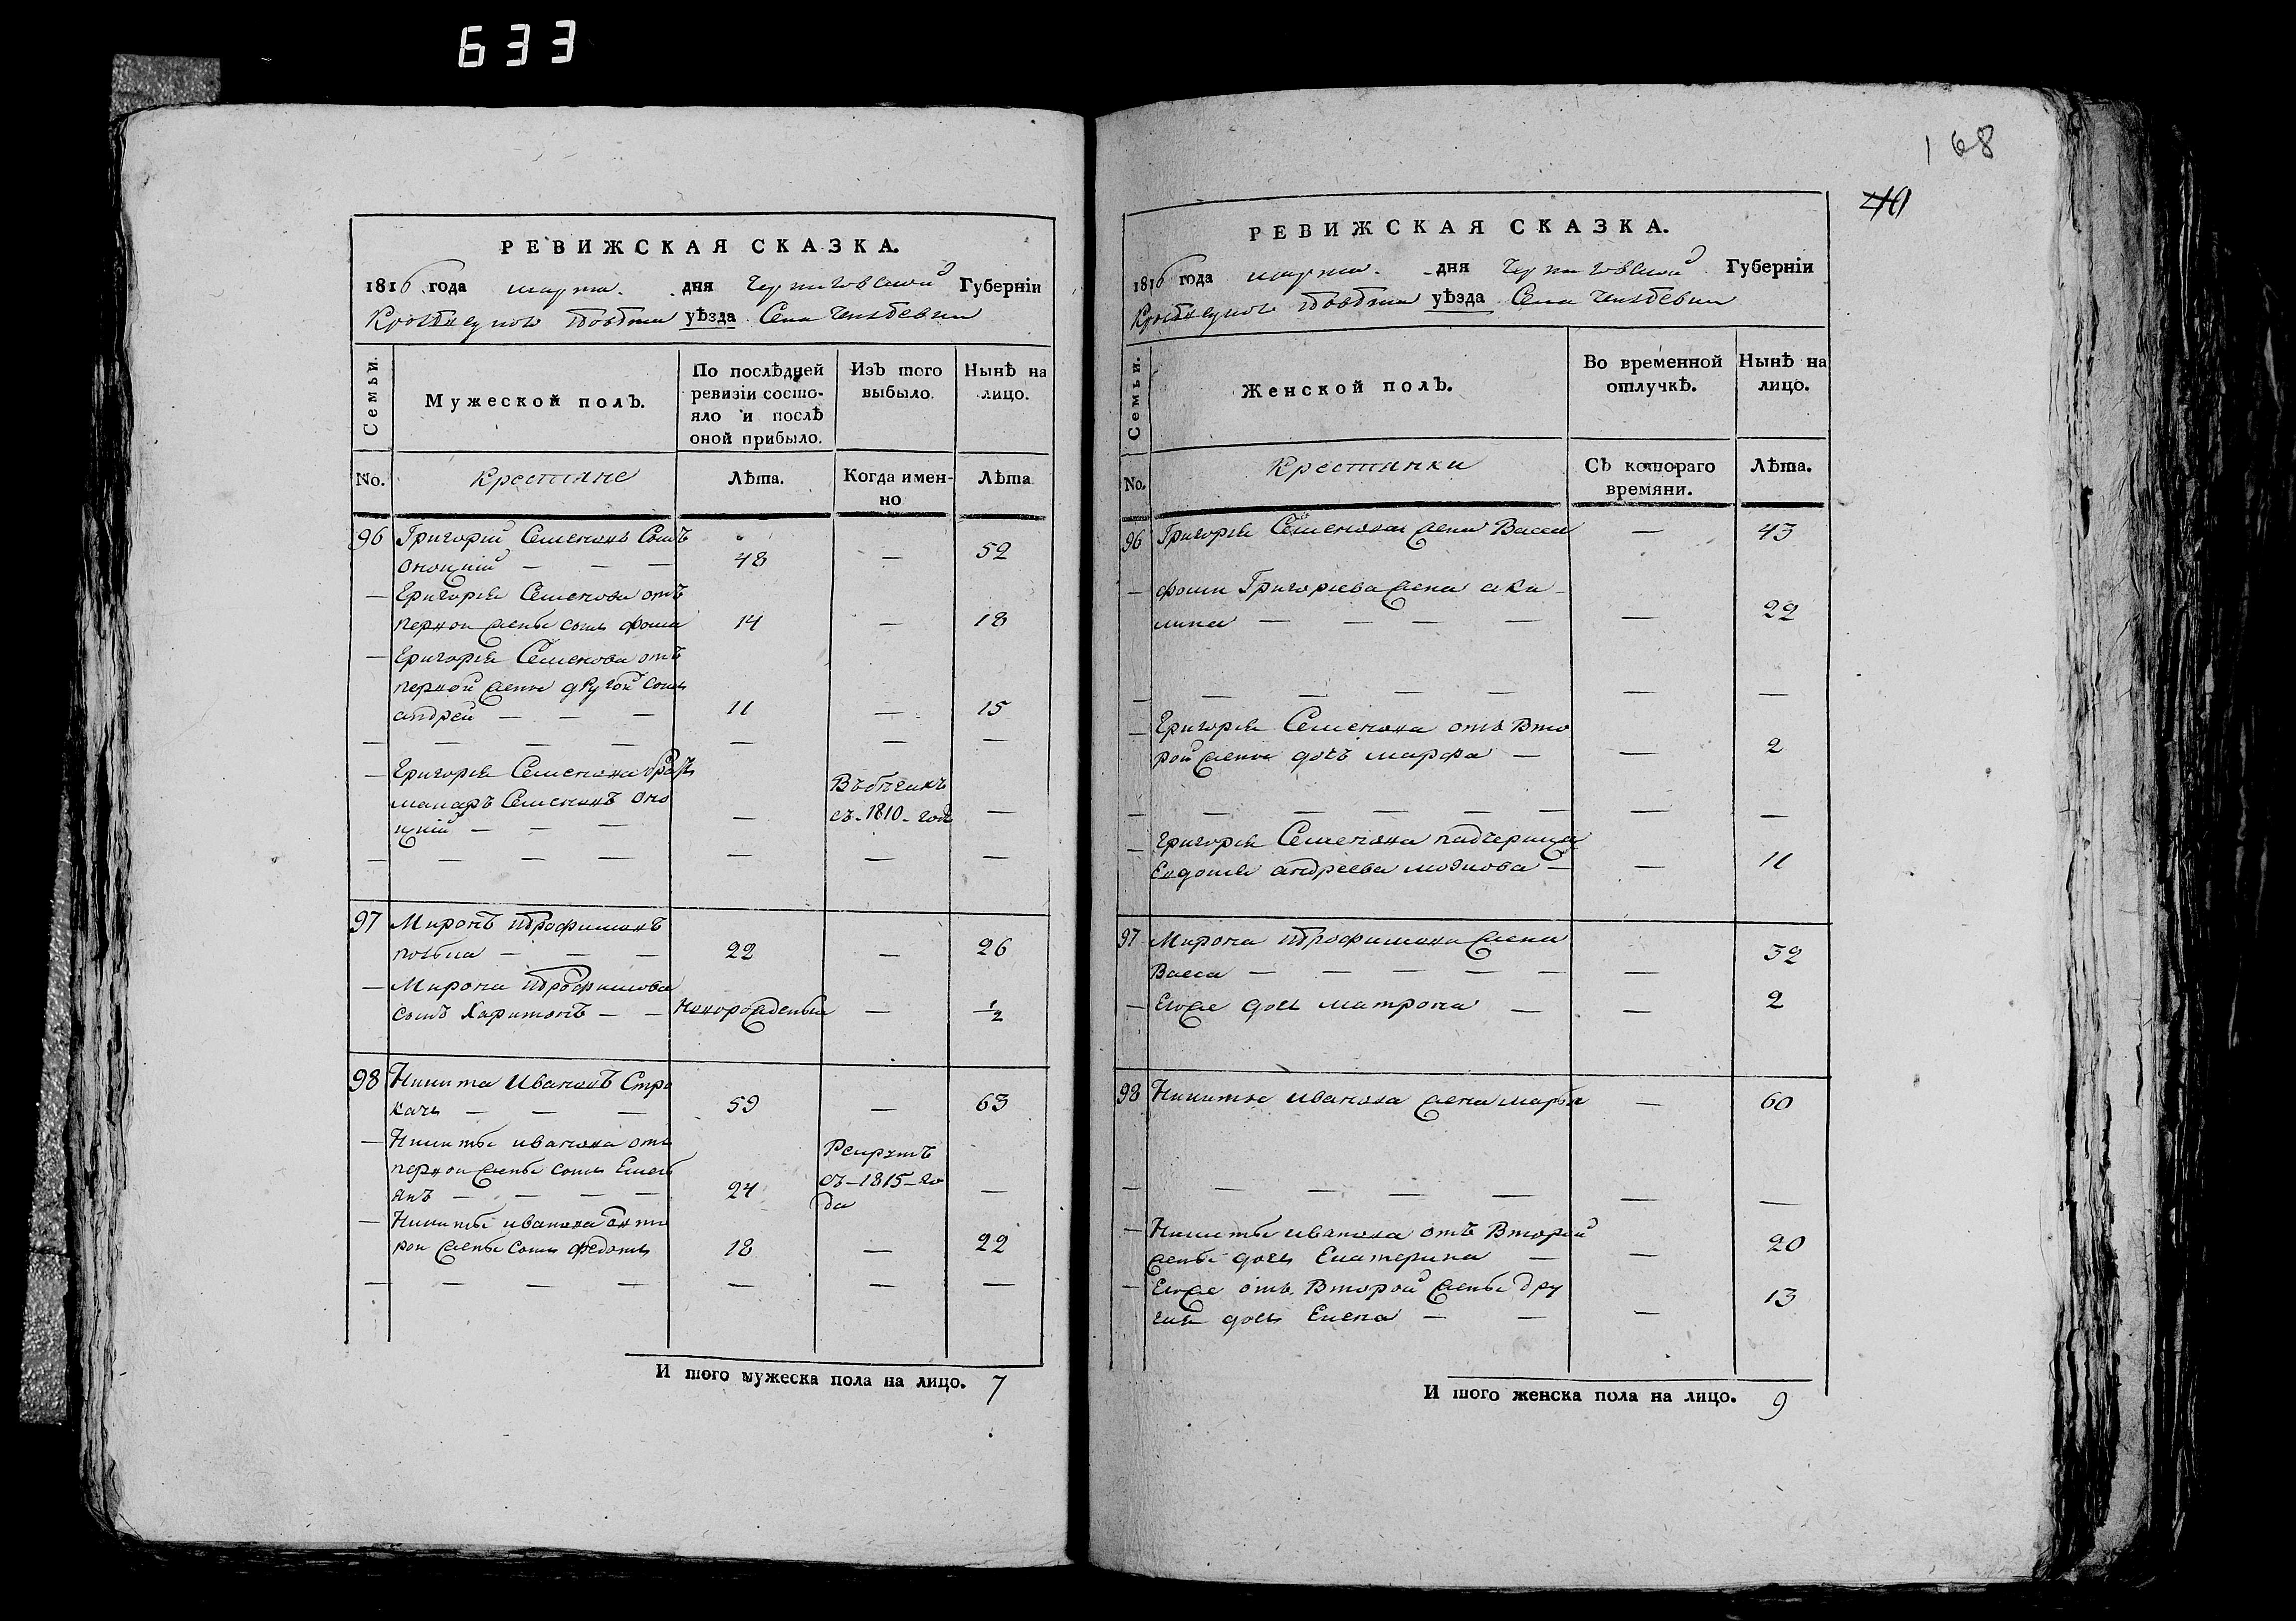 633
РЕВИЖСКАЯ СКАЗКА.
1816 года марта дня Черниговской Губерніи
уѣзда Села
Семьи.
Мужеской полъ.
По послѣдней ревизіи состо-
яло и послѣ
оной прибыло.
Изъ того
выбыло.
Нынѣ на
лицо.
No.
Крестяне
Лѣта.
Когда имен-
но
Лѣта
96 Григорій Семеновъ Сынъ
48 — 52
— Григорія Семенова отъ
первои жены сынъ фома 14 — 18
— Григорія Семенова отъ
первой жены другой сынъ
андрей — — — 11 — 15
— — — — — — —
— Григорія Семенова братъ
макаръ Семеновъ Оно
цкій — — — — Въ бѣгахъ
съ 1810 года —
— — — — — — —
97 Миронъ трофимовъ
— — — 22 — 26
— Мирона трофимова
сынъ Харитонъ — — Новорожденный — 1/2
98 Никита Ивановъ Стро
качъ — — — 59 — 63
— Никиты иванова отъ
первои жены сынъ Емель
янъ — — — — 24 Рекрутъ
съ 1815 го
да —
— Никиты иванова от вто
рои жены сынъ федотъ 18 — 22
— — — — — — —
И того мужеска пола на лицо. 7
168
40
РЕВИЖСКАЯ СКАЗКА.
1816 года марта дня Черниговской Губерніи
уѣзда Села
Семьи.
Женской полъ.
Во временной
отлучкѣ.
Нынѣ на
лицо.
No.
Крестянки
Съ котораго
времяни.
Лѣта.
96 Григорія Семенова жена Васса — 43
— фомы Григорьева жена аки-
лина — — — — — 22
— — — — — — —
— Григорія Семенова отъ Вто
рой жены дочъ марфа — — 2
— — — — — — —
— Григорія Семенова падчерица
Евдокія андреева — — 11
97 Мирона трофимова жена
Васса — — — — — — 32
— Егоже дочь матрона — — 2
98 Никиты иванова жена марья — 60
— — — — — — —
— Никиты иванова отъ Второй
жены дочь Екатерина — — 20
— Егоже отъ Второй жены дру
гая дочь Елена — — — 13
И того женска пола на лицо. 9